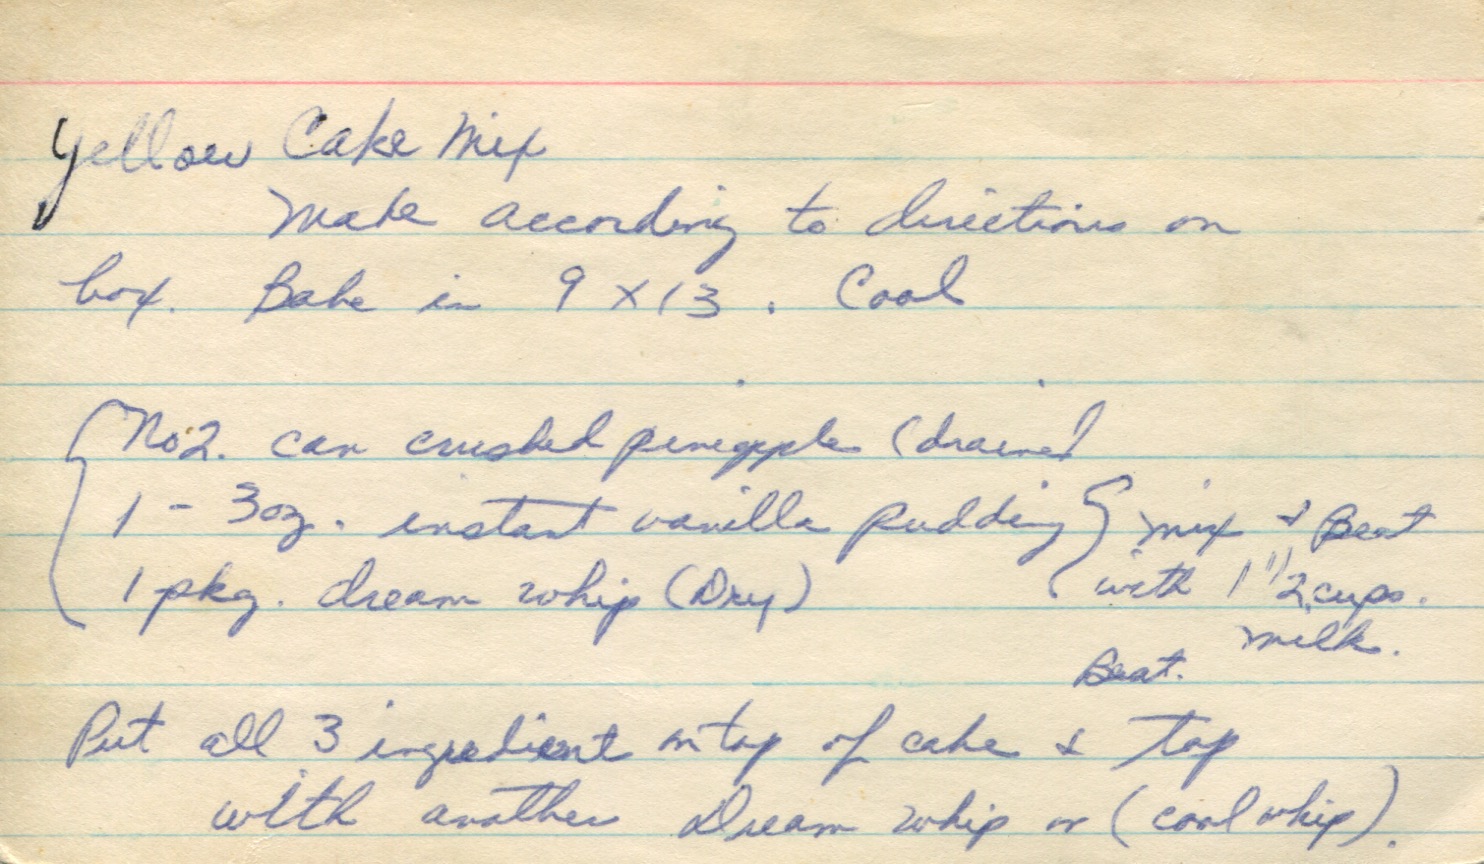 Yellow Cake Mix
Make according to directions on
box. Bake in 9 X 13. Cool
No 2. can crushed pineapple (drained
1 - 3 oz. instant vanilla pudding } mix & Beat
1 pkg. dream whip (Dry) with 1 1/2 cups.
milk.
Beat.
Put all 3 ingredient on top of cake & top
with another Dream whip or (cool whip).